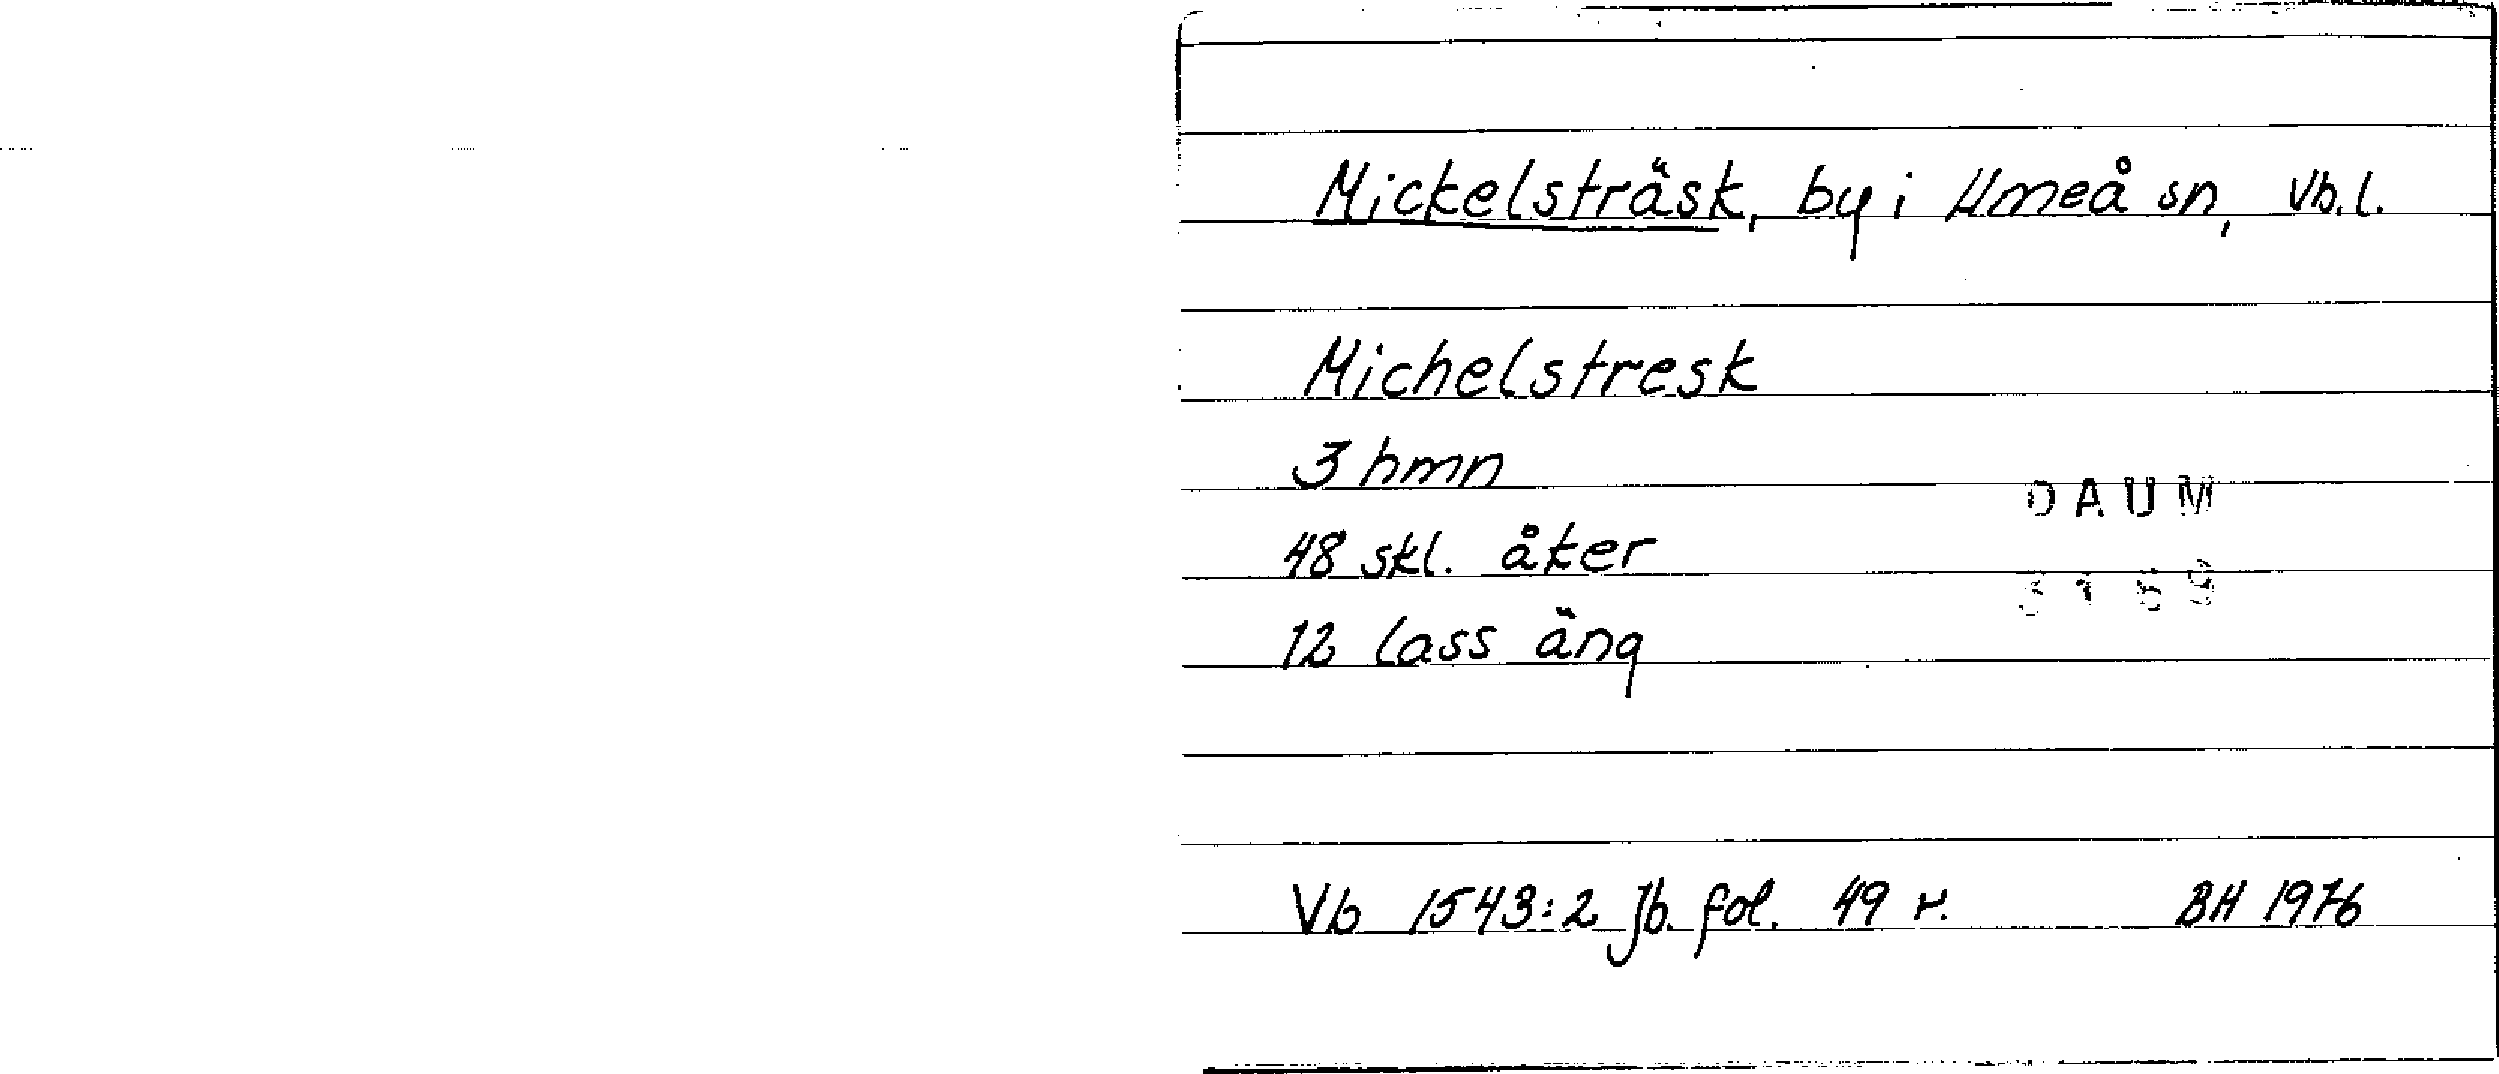 Mickelsträsk, by i Umeå sn, Vb.l.
Michelstresk
3 hmn
DAUM
48 skl. åker
12 lass äng
Vb 1543:2 jb. fol. 49 r. BH 1976